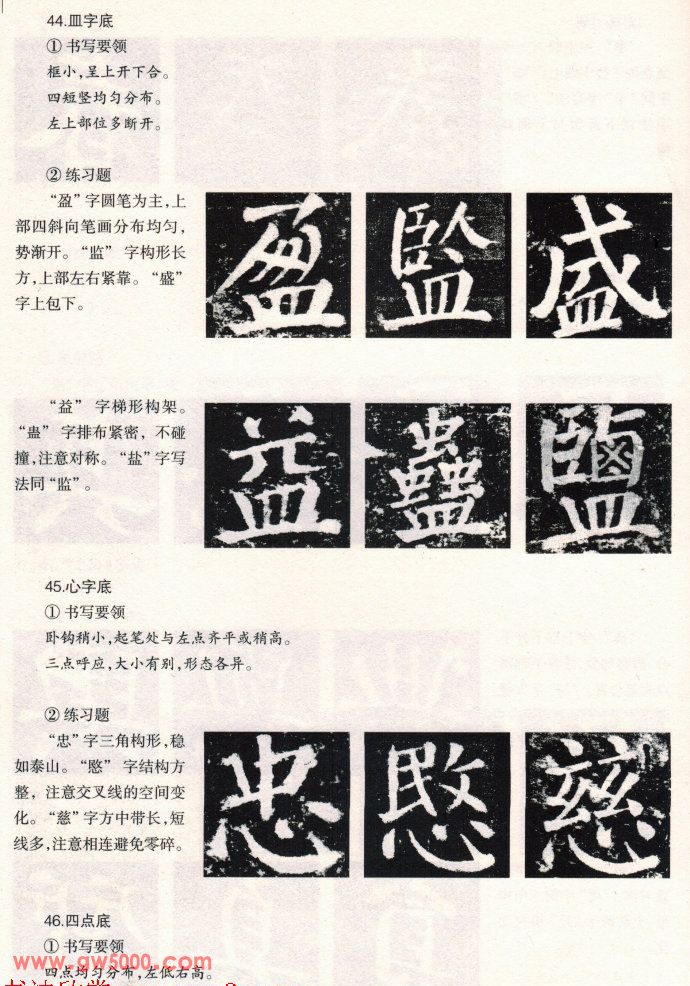 44.皿字底
① 书写要领
框小,呈上开下合。
四短竖均匀分布。
左上部位多断开。
② 练习题
“盈”字圆笔为主,上
部四斜向笔画分布均匀,
势渐开。“监” 字构形长
方,上部左右紧靠。“盛”
字上包下。
盈 監 盛
“益” 字梯形构架。
“蛊” 字排布紧密, 不碰
撞,注意对称。“盐”字写
法同“监”。
益 蠱 鹽
45.心字底
① 书写要领
卧钩稍小,起笔处与左点齐平或稍高。
三点呼应,大小有别,形态各异。
② 练习题
“忠”字三角构形,稳
如泰山。“愍” 字结构方
整, 注意交叉线的空间变
化。“慈”字方中带长,短
线多,注意相连避免零碎。
忠 愍 慈
46.四点底
① 书写要领
www.gw5000.com
四点均匀分布,左低右高。